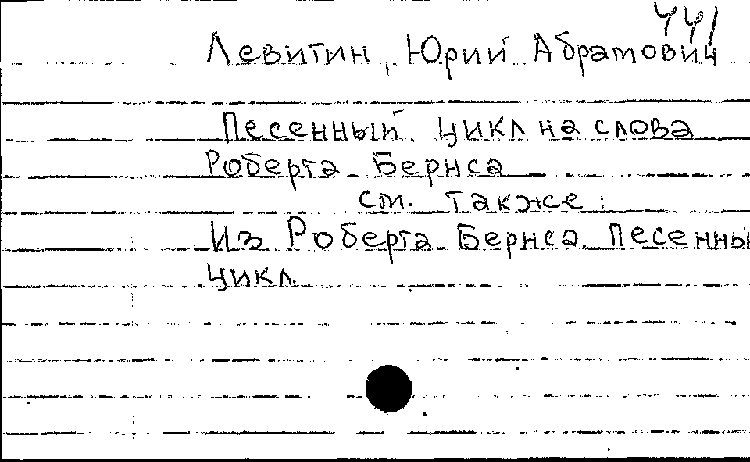 441
Левитин, Юрий Абрамович
Песенный цикл на слова
Роберта Бернса
см. также:
Из Роберта Бернса. Песенны
цикл